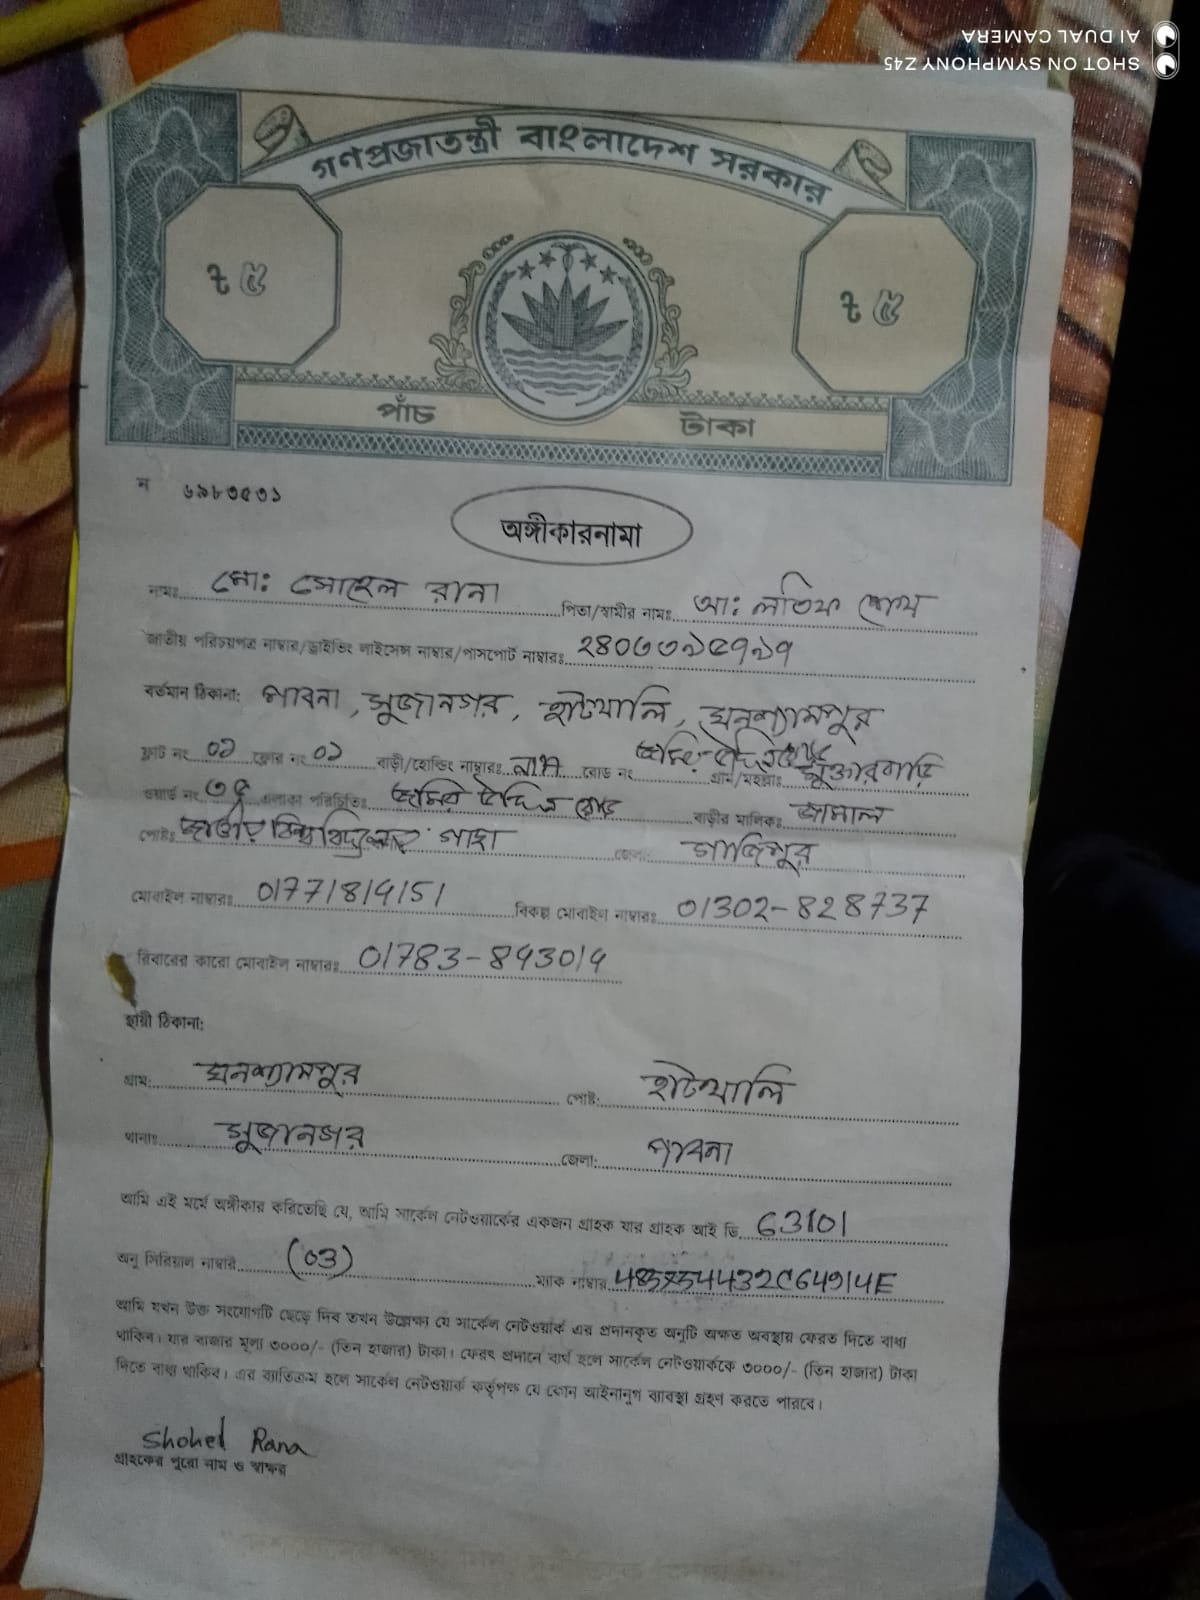 SHOT ON SYMPHONY Z45
AI DUAL CAMERA
গণপ্রজাতন্ত্রী বাংলাদেশ সরকার
৳ ৫ ৳ ৫
পাঁচ টাকা
ন ৬৯৮৩৫৩১
অঙ্গীকারনামা
নামঃ মো: সোহেল রানা পিতা/স্বামীর নামঃ আ: লতিফ শেখ
জাতীয় পরিচয়পত্র নাম্বার/ড্রাইভিং লাইসেন্স নাম্বার/পাসপোর্ট নাম্বারঃ
বর্তমান ঠিকানা: পাবনা, সুজানগর, হাটখালি, ঘনশ্যামপুর
ফ্লাট নং ০১ ফ্লোর নং ০১ বাড়ী/হোল্ডিং নাম্বারঃ রোড নং গ্রাম/মহল্লাঃ মুক্তারবাড়ি
ওয়ার্ড নং ৩৫ এলাকা পরিচিতিঃ বাড়ীর মালিকঃ জামাল
পোষ্টঃ জাতীয় গাছা জেলা: গাজিপুর
মোবাইল নাম্বারঃ 01771814151 বিকল্প মোবাইল নাম্বারঃ 01302-828737
রিবারের কারো মোবাইল নাম্বারঃ 01783-893014
স্থায়ী ঠিকানা:
গ্রাম: ঘনশ্যামপুর পোষ্ট: হাটখালি
থানাঃ সুজানগর জেলা: পাবনা
আমি এই মর্মে অঙ্গীকার করিতেছি যে, আমি সার্কেল নেটওয়ার্কের একজন গ্রাহক যার গ্রাহক আই ডি 63101
অনু সিরিয়াল নাম্বার (03) ম্যাক নাম্বার
আমি যখন উক্ত সংযোগটি ছেড়ে দিব তখন উল্লেক্ষ্য যে সার্কেল নেটওয়ার্ক এর প্রদানকৃত অনুটি অক্ষত অবস্থায় ফেরত দিতে বাধ্য
থাকিব। যার বাজার মূল্য ৩০০০/- (তিন হাজার) টাকা। ফেরৎ প্রদানে ব্যর্থ হলে সার্কেল নেটওয়ার্ককে ৩০০০/- (তিন হাজার) টাকা
দিতে বাধ্য থাকিব। এর ব্যতিক্রম হলে সার্কেল নেটওয়ার্ক কর্তৃপক্ষ যে কোন আইনানুগ ব্যাবস্থা গ্রহণ করতে পারবে।
Shohel Rana
গ্রাহকের পুরো নাম ও স্বাক্ষর